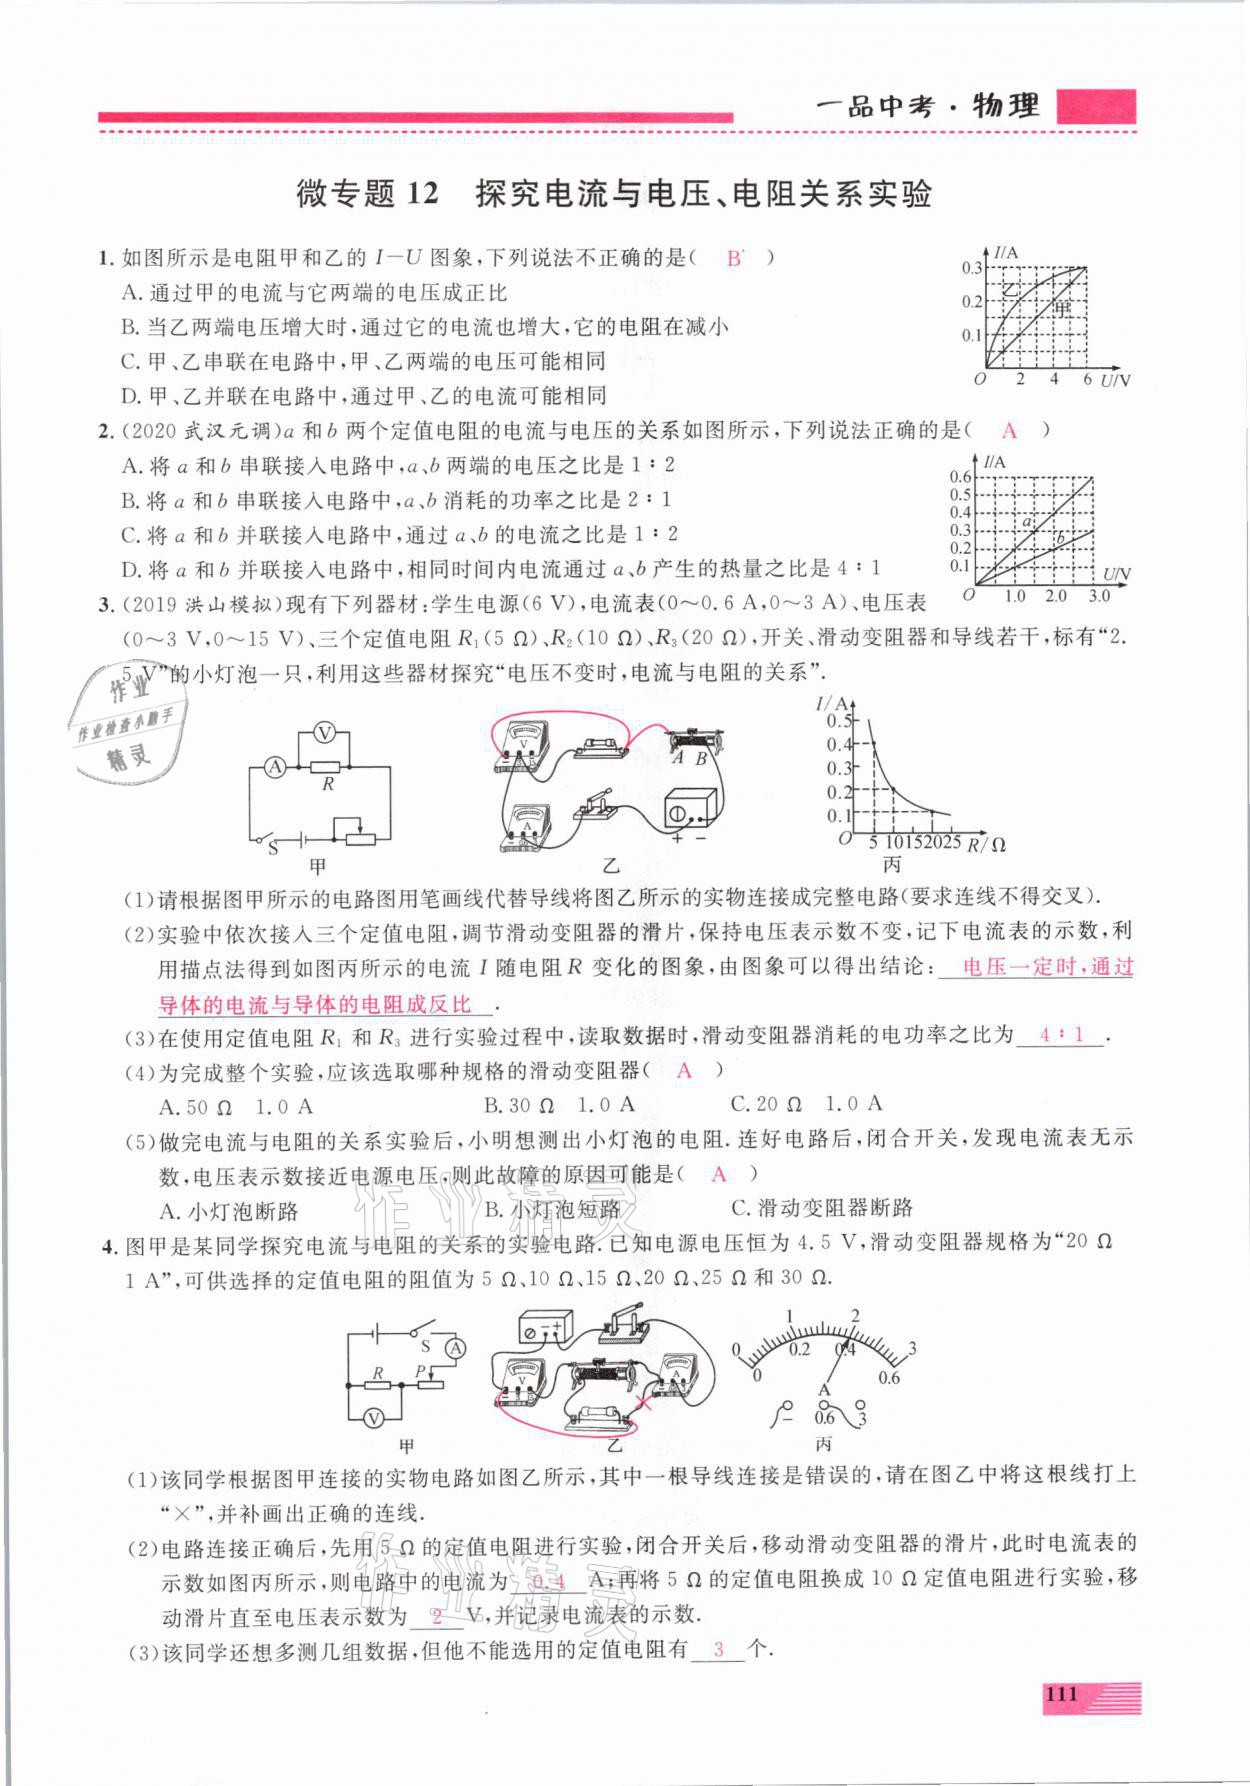 一品中考·物理
微专题 12 探究电流与电压、电阻关系实验
1. 如图所示是电阻甲和乙的 I－U 图象,下列说法不正确的是( B )
A. 通过甲的电流与它两端的电压成正比
B. 当乙两端电压增大时,通过它的电流也增大,它的电阻在减小
C. 甲、乙串联在电路中,甲、乙两端的电压可能相同
D. 甲、乙并联在电路中,通过甲、乙的电流可能相同
I/A
0.3
0.2
0.1
乙
甲
O 2 4 6 U/V
2. (2020 武汉元调)a 和 b 两个定值电阻的电流与电压的关系如图所示,下列说法正确的是( A )
A. 将 a 和 b 串联接入电路中,a、b 两端的电压之比是 1∶2
B. 将 a 和 b 串联接入电路中,a、b 消耗的功率之比是 2∶1
C. 将 a 和 b 并联接入电路中,通过 a、b 的电流之比是 1∶2
D. 将 a 和 b 并联接入电路中,相同时间内电流通过 a、b 产生的热量之比是 4∶1
I/A
0.6
0.5
0.4
0.3
0.2
0.1
a
b
U/V
O 1.0 2.0 3.0
3. (2019 洪山模拟)现有下列器材:学生电源(6 V),电流表(0～0.6 A,0～3 A)、电压表
(0～3 V,0～15 V)、三个定值电阻 R₁(5 Ω)、R₂(10 Ω)、R₃(20 Ω),开关、滑动变阻器和导线若干,标有“2.
5 V”的小灯泡一只,利用这些器材探究“电压不变时,电流与电阻的关系”.
作业
作业检查小助手
精灵
V
A
R
S
甲
V
A B
A
+ −
乙
I/A
0.5
0.4
0.3
0.2
0.1
O 5 10 15 20 25 R/Ω
丙
(1)请根据图甲所示的电路图用笔画线代替导线将图乙所示的实物连接成完整电路(要求连线不得交叉).
(2)实验中依次接入三个定值电阻,调节滑动变阻器的滑片,保持电压表示数不变,记下电流表的示数,利
用描点法得到如图丙所示的电流 I 随电阻 R 变化的图象,由图象可以得出结论: 电压一定时,通过
导体的电流与导体的电阻成反比 .
(3)在使用定值电阻 R₁ 和 R₃ 进行实验过程中,读取数据时,滑动变阻器消耗的电功率之比为 4∶1 .
(4)为完成整个实验,应该选取哪种规格的滑动变阻器( A )
A. 50 Ω 1.0 A B. 30 Ω 1.0 A C. 20 Ω 1.0 A
(5)做完电流与电阻的关系实验后,小明想测出小灯泡的电阻. 连好电路后,闭合开关,发现电流表无示
数,电压表示数接近电源电压,则此故障的原因可能是( A )
A. 小灯泡断路 B. 小灯泡短路 C. 滑动变阻器断路
作业精灵
4. 图甲是某同学探究电流与电阻的关系的实验电路. 已知电源电压恒为 4.5 V,滑动变阻器规格为“20 Ω
1 A”,可供选择的定值电阻的阻值为 5 Ω、10 Ω、15 Ω、20 Ω、25 Ω 和 30 Ω.
S
A
R
P
V
甲
− +
V
A
乙
0 1 2 3
0 0.2 0.4 0.6
A
− 0.6 3
丙
(1)该同学根据图甲连接的实物电路如图乙所示,其中一根导线连接是错误的,请在图乙中将这根线打上
“×”,并补画出正确的连线.
(2)电路连接正确后,先用 5 Ω 的定值电阻进行实验,闭合开关后,移动滑动变阻器的滑片,此时电流表的
示数如图丙所示,则电路中的电流为 0.4 A;再将 5 Ω 的定值电阻换成 10 Ω 定值电阻进行实验,移
动滑片直至电压表示数为 2 V,并记录电流表的示数.
作业精灵
(3)该同学还想多测几组数据,但他不能选用的定值电阻有 3 个.
111